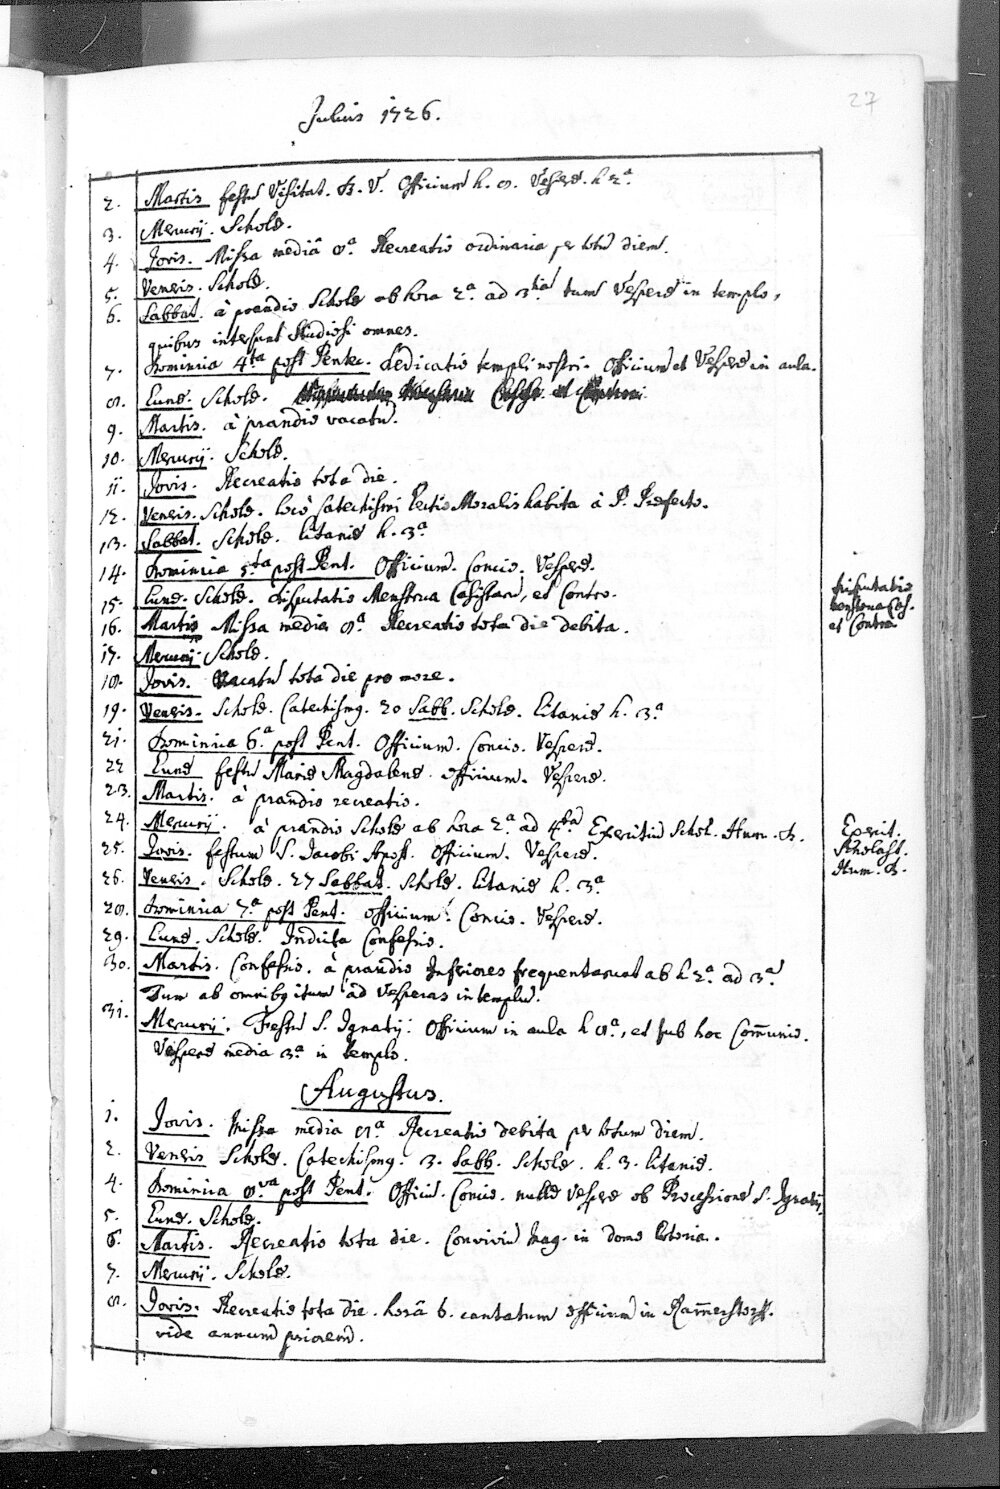 27
Julius 1726.
2. Martis festū Visitat. B. V. Officium h. 8. Vesperæ. h 2ª.
3. Mercurij. Scholæ.
4. Jovis. Missa mediâ 8ª. Recreatio ordinaria per totū diem.
5. Veneris. Scholæ.
6. Sabbat. à prandio Scholæ ab hora 2ª. ad 3tiā tum Vesperæ in templo,
quibus intersunt Studiosi omnes.
7. Dominica 4ta post Pentec. Dedicatio templi nostri. Officium et Vesperæ in aula.
8. Lunæ. Scholæ.
9. Martis. à prandio vacatū.
10. Mercurij. Scholæ.
11. Jovis. Recreatio tota die.
12. Veneris. Scholæ. locò Catechismi lectio Moralis habita à P. Præfecto.
13. Sabbat. Scholæ. litaniæ h. 3ª.
14. Dominica 5.ta post Pent. Officium. Concio. Vesperæ.
15. Lunæ. Scholæ. Disputatio Menstrua Casistarū, et Contro.
Disputatio
menstrua Cas.
et Contro.
16. Martis Missa media 8ª. Recreatio tota die debita.
17. Mercurij Scholæ.
18. Jovis. Vacatū tota die pro more.
19. Veneris. Scholæ. Catechismq. 20 Sabb. Scholæ. litaniæ h. 3ª
21. Dominica 6.ª post Pent. Officium. Concio. Vesperæ.
22 Lunæ festū Mariæ Magdalenæ. officium. Vesperæ.
23. Martis. à prandio recreatio.
24. Mercurij. à prandio Scholæ ab hora 2ª. ad 4tā. Exercitiū Schol. Hum. &.
Exercit.
Scholast.
Hum. &.
25. Jovis. festum S. Jacobi Apost. Officium. Vesperæ.
26. Veneris. Scholæ. 27 Sabbat. Scholæ. litaniæ h. 3ª
28. Dominica 7.ª post Pent. Officium. Concio. Vesperæ.
29. Lunæ. Scholæ. Indicta Confessio.
30. Martis. Confessio. à prandio Inferiores frequentarunt ab h 2ª. ad 3ª
Tum ab omnibq itum ad Vesperas in templū.
31. Mercurij. Festū S. Ignatij. Officium in aula h 8ª., et sub hoc Com̄unio.
Vesperæ media 3ª. in templo.
Augustus.
1. Jovis. Missa media 8ª Recreatio debita per totum diem.
2. Veneris Scholæ. Catechismq. 3. Sabb. Scholæ. h. 3. litaniæ.
4. Dominica 8.va post Pent. Officiū. Concio. nullæ Vesperæ ob Processionē S. Ignatij.
5. Lunæ. Scholæ.
6. Martis. Recreatio tota die. Conviviū Mag. in domo
7. Mercurij. Scholæ.
8. Jovis. Recreatio tota die. horâ 6. cantatum officium in Ram̄erstorff.
vide annum priorem.